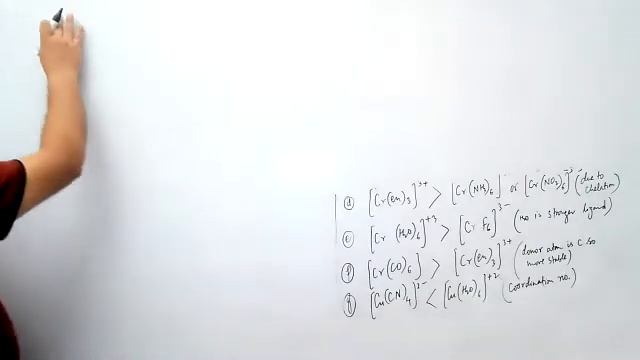 (d) [Cr(en)3]3+ > [Cr(NH3)6] or [Cr(NO3)6]-3 (due to chelation)
(e) [Cr (H2O)6]+3 > [Cr F6]3- (H2O is stronger ligand)
(f) [Cr(CO)6] > [Cr(en)3]3+ (donor atom is C so more stable)
[Cu(CN)4]2- < [Cu(H2O)6]+2 (Coordination no.)